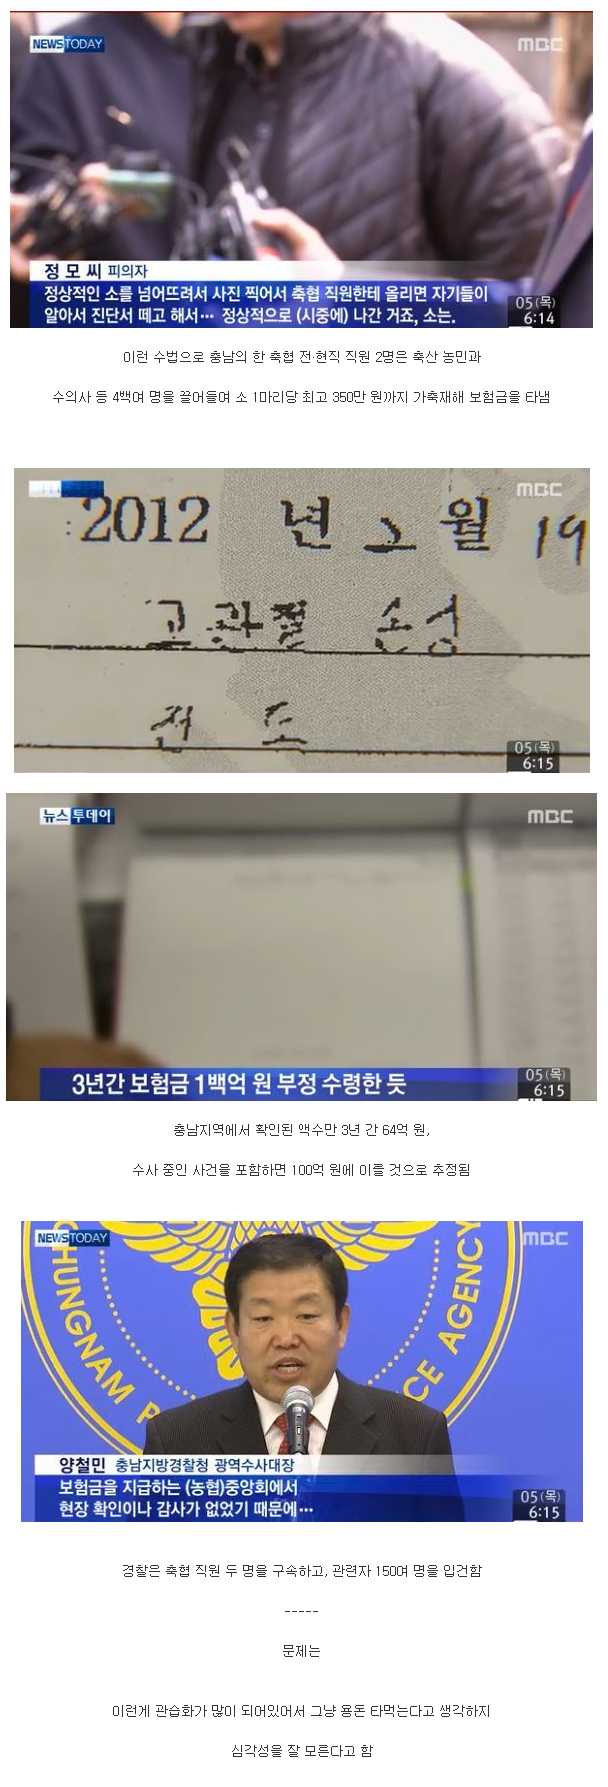 NEWSTODAY
MBC
정 모 씨 피의자
정상적인 소를 넘어뜨려서 사진 찍어서 축협 직원한테 올리면 자기들이
알아서 진단서 떼고 해서… 정상적으로 (시중에) 나간 거죠, 소는.
05(목)
6:14
이런 수법으로 충남의 한 축협 전·현직 직원 2명은 축산 농민과
수의사 등 4백여 명을 끌어들여 소 1마리당 최고 350만 원까지 가축재해 보험금을 타냄
MBC
:2012 년 2 월 19
고관절 손상
전 도
05(목)
6:15
뉴스투데이
MBC
3년간 보험금 1백억 원 부정 수령한 듯
05(목)
6:15
충남지역에서 확인된 액수만 3년 간 64억 원,
수사 중인 사건을 포함하면 100억 원에 이를 것으로 추정됨
NEWSTODAY
MBC
CHUNGNAM P
CE AGENCY
양철민 충남지방경찰청 광역수사대장
보험금을 지급하는 (농협)중앙회에서
현장 확인이나 감사가 없었기 때문에…
05(목)
6:15
경찰은 축협 직원 두 명을 구속하고, 관련자 150여 명을 입건함
-----
문제는
이런게 관습화가 많이 되어있어서 그냥 용돈 타먹는다고 생각하지
심각성을 잘 모른다고 함